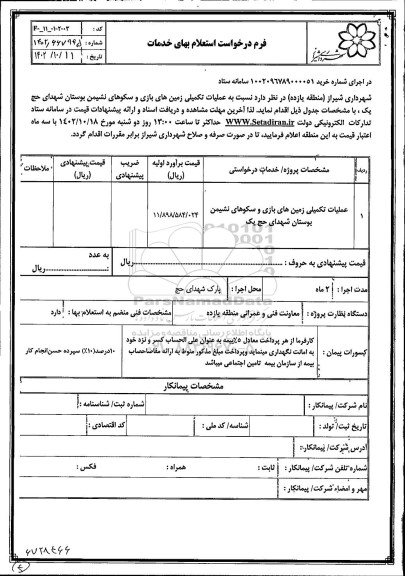 فرم درخواست استعلام بهای خدمات
کد :
شماره :
تاریخ : ۱۴۰۲/۱۰/۱۱
در اجرای شماره خرید ۱۰۰۲۰۹۶۷۸۹۰۰۰۰۵۱ سامانه ستاد
شهرداری شیراز (منطقه یازده) در نظر دارد نسبت به عملیات تکمیلی زمین های بازی و سکوهای نشیمن بوستان شهدای حج
یک ، با مشخصات جدول ذیل اقدام نماید. لذا آخرین مهلت مشاهده و دریافت اسناد و ارائه پیشنهادات قیمت در سامانه ستاد
تدارکات الکترونیکی دولت WWW.Setadiran.ir حداکثر تا ساعت ۱۳:۰۰ روز دو شنبه مورخ ۱۴۰۲/۱۰/۱۸ با سه ماه
اعتبار قیمت به این منطقه اعلام فرمایید، تا در صورت صرفه و صلاح شهرداری شیراز برابر مقررات اقدام گردد.
ردیف مشخصات پروژه/ خدمات درخواستی قیمت برآورد اولیه (ریال) ضریب پیشنهادی قیمت پیشنهادی (ریال) ملاحظات
۱ عملیات تکمیلی زمین های بازی و سکوهای نشیمن بوستان شهدای حج یک ۱۱/۸۹۸/۵۸۴/۰۲۴
قیمت پیشنهادی به حروف : ریال به عدد : ریال
مدت اجرا : ۲ ماه محل اجرا : پارک شهدای حج
دستگاه نظارت پروژه : معاونت فنی و عمرانی منطقه یازده مشخصات فنی منضم به استعلام بها : دارد
کسورات پیمان : کارفرما از هر پرداخت معادل ۵٪بیمه به عنوان علی الحساب کسر و نزد خود
به امانت نگهداری مینماید وپرداخت مبلغ مذکور منوط به ارائه مفاصاحساب
بیمه از سازمان بیمه تامین اجتماعی میباشد
۱۰درصد(۱۰٪) سپرده حسن انجام کار
مشخصات پیمانکار
نام شرکت/ پیمانکار: شماره ثبت/ شناسنامه :
تاریخ ثبت/ تولد : شناسه/ کد ملی : کد اقتصادی :
آدرس شرکت/ پیمانکار:
شماره تلفن شرکت/ پیمانکار: ثابت : همراه : فکس :
مهر و امضاء شرکت/ پیمانکار:
ParsNamadData
پایگاه اطلاع رسانی مناقصه و مزایده